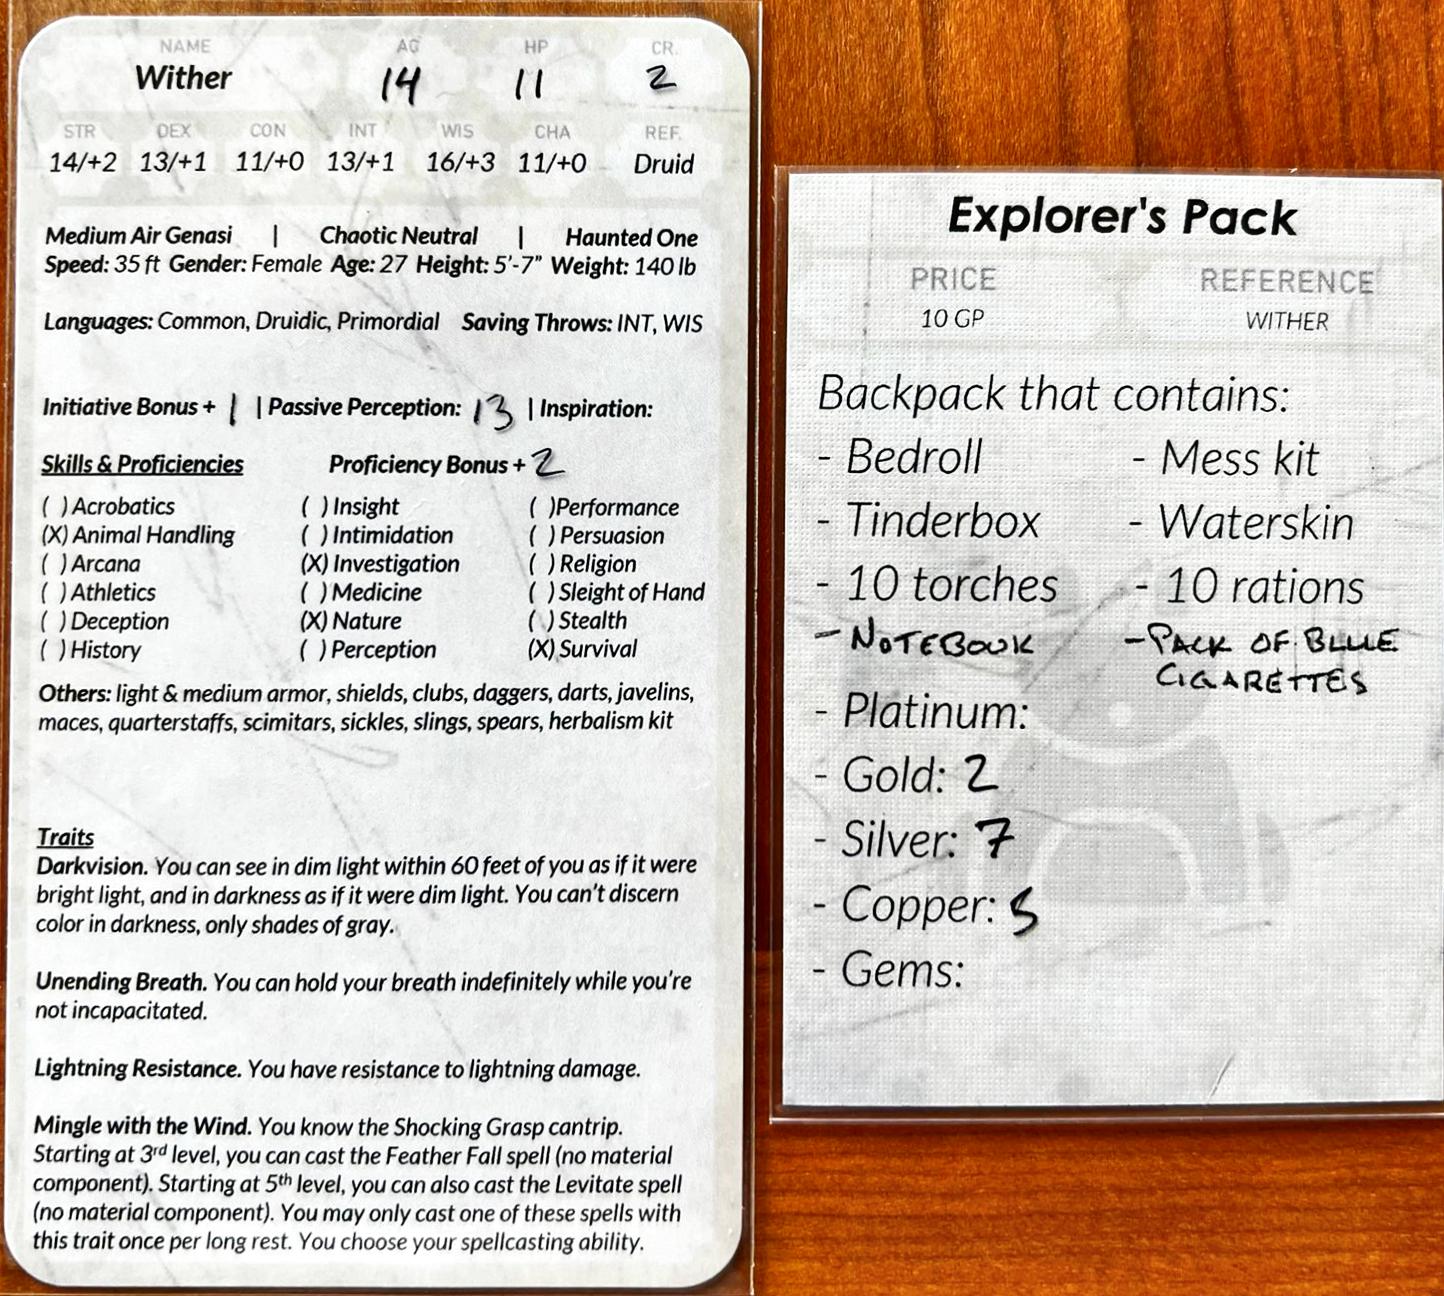 NAME AC HP CR.
Wither 14 11 2
STR DEX CON INT WIS CHA REF.
14/+2 13/+1 11/+0 13/+1 16/+3 11/+0 Druid
Medium Air Genasi | Chaotic Neutral | Haunted One
Speed: 35 ft Gender: Female Age: 27 Height: 5'-7" Weight: 140 lb
Languages: Common, Druidic, Primordial Saving Throws: INT, WIS
Initiative Bonus + 1 | Passive Perception: 13 | Inspiration:
Skills & Proficiencies Proficiency Bonus + 2
( ) Acrobatics ( ) Insight ( )Performance
(X) Animal Handling ( ) Intimidation ( ) Persuasion
( ) Arcana (X) Investigation ( ) Religion
( ) Athletics ( ) Medicine ( ) Sleight of Hand
( ) Deception (X) Nature ( ) Stealth
( ) History ( ) Perception (X) Survival
Others: light & medium armor, shields, clubs, daggers, darts, javelins,
maces, quarterstaffs, scimitars, sickles, slings, spears, herbalism kit
Traits
Darkvision. You can see in dim light within 60 feet of you as if it were
bright light, and in darkness as if it were dim light. You can't discern
color in darkness, only shades of gray.
Unending Breath. You can hold your breath indefinitely while you're
not incapacitated.
Lightning Resistance. You have resistance to lightning damage.
Mingle with the Wind. You know the Shocking Grasp cantrip.
Starting at 3rd level, you can cast the Feather Fall spell (no material
component). Starting at 5th level, you can also cast the Levitate spell
(no material component). You may only cast one of these spells with
this trait once per long rest. You choose your spellcasting ability.
Explorer's Pack
PRICE REFERENCE
10 GP WITHER
Backpack that contains:
- Bedroll - Mess kit
- Tinderbox - Waterskin
- 10 torches - 10 rations
- NOTEBOOK - PACK OF BLUE
CIGARETTES
- Platinum:
- Gold: 2
- Silver: 7
- Copper: 5
- Gems: